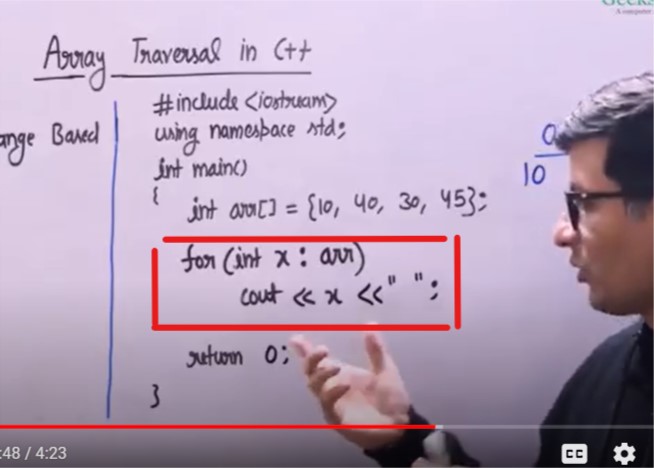 GEEKS
Array Traversal in C++
ange Based
#include <iostream>
using namespace std;
int main()
{
int arr[] = {10, 40, 30, 45};
for (int x : arr)
cout << x << " ";
return 0;
}
0
10
:48 / 4:23
CC